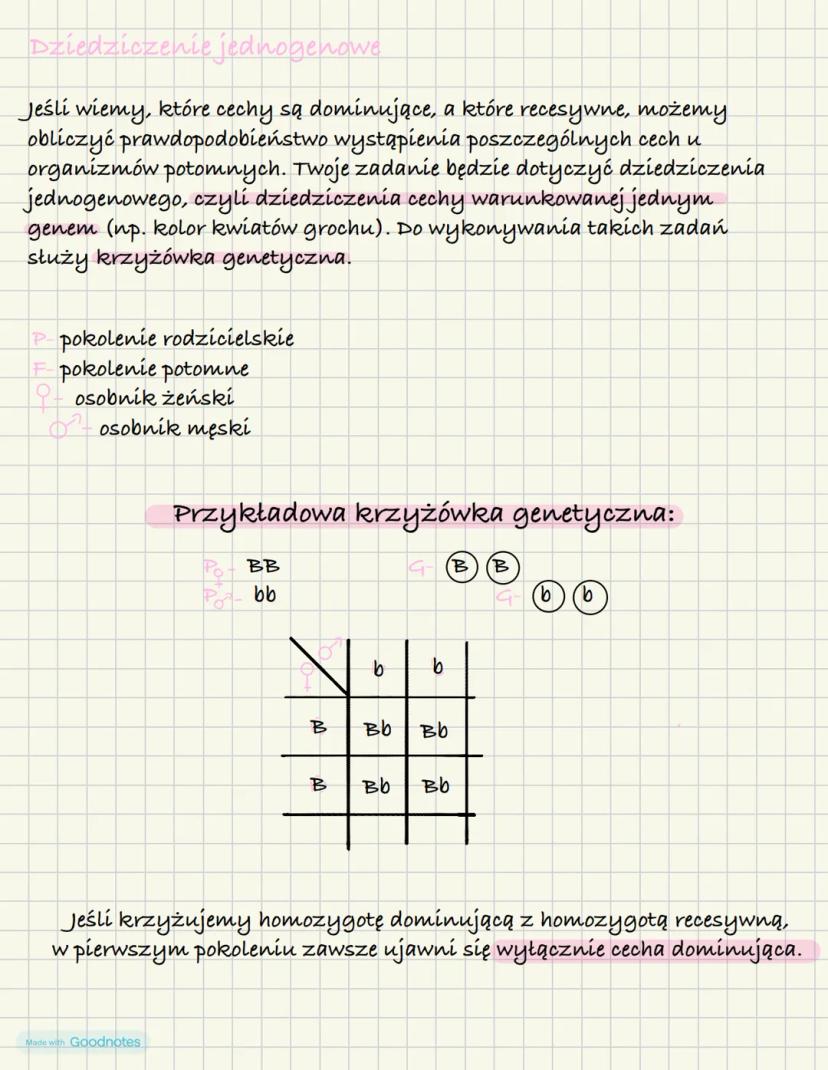 Dziedziczenie jednogenowe
Jeśli wiemy, które cechy są dominujące, a które recesywne, możemy
obliczyć prawdopodobieństwo wystąpienia poszczególnych cech u
organizmów potomnych. Twoje zadanie będzie dotyczyć dziedziczenia
jednogenowego, czyli dziedziczenia cechy warunkowanej jednym
genem (np. kolor kwiatów grochu). Do wykonywania takich zadań
służy krzyżówka genetyczna.
P- pokolenie rodzicielskie
F- pokolenie potomne
♀- osobnik żeński
♂- osobnik męski
Przykładowa krzyżówka genetyczna:
P♀- BB G- B B
P♂- bb G- b b
♀ ♂ b b
B Bb Bb
B Bb Bb
Jeśli krzyżujemy homozygotę dominującą z homozygotą recesywną,
w pierwszym pokoleniu zawsze ujawni się wyłącznie cecha dominująca.
Made with Goodnotes